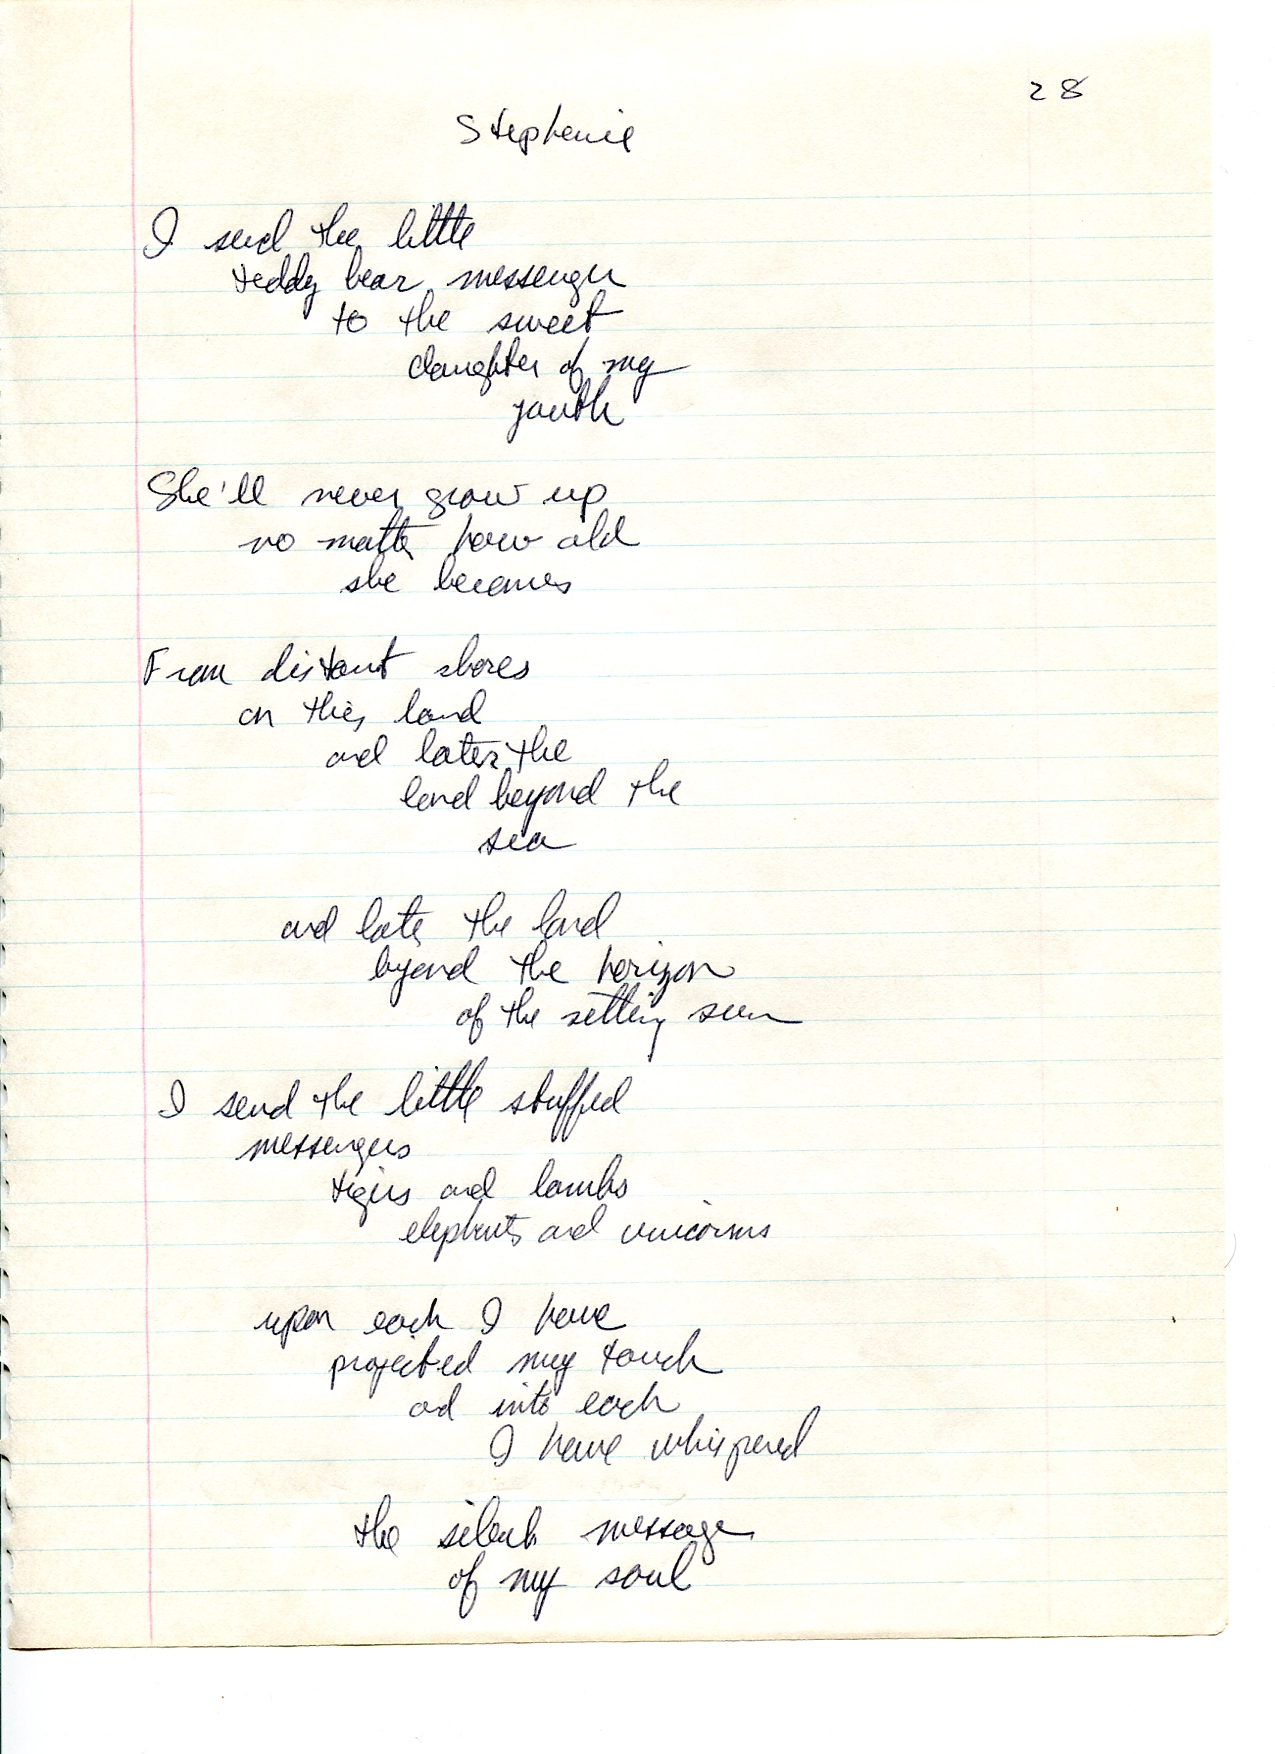 28
Stephanie
I send the little
teddy bear messenger
to the sweet
daughter of my
youth
She'll never grow up
no matter how old
she becomes
From distant shores
on this land
and later the
land beyond the
sea
and late the land
byond the horizon
of the setting sun
I send the little stuffed
messengers
tigers and lambs
elephants and unicorns
upon each I have
projected my touch
and into each
I have whispered
the silent message
of my soul